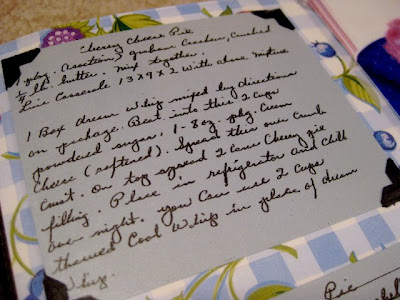 Cherry Cheese Pie
1 pkg. (section) Graham Crackers, Crushed
¼ lb. butter. Mix together.
Line Casserole 13 x 9 x 2 with above mixture
1 Box dream Whip mixed by directions
on package. Beat into this 2 cups
powdered sugar, 1 - 8 oz. pkg. Cream
Cheese (softened). Spread this over crumb
crust. On top spread 2 cans Cherry pie
filling. Place in refrigerator and chill
over night. You can use 2 cups
thawed Cool Whip in place of dream
Whip.
Pie